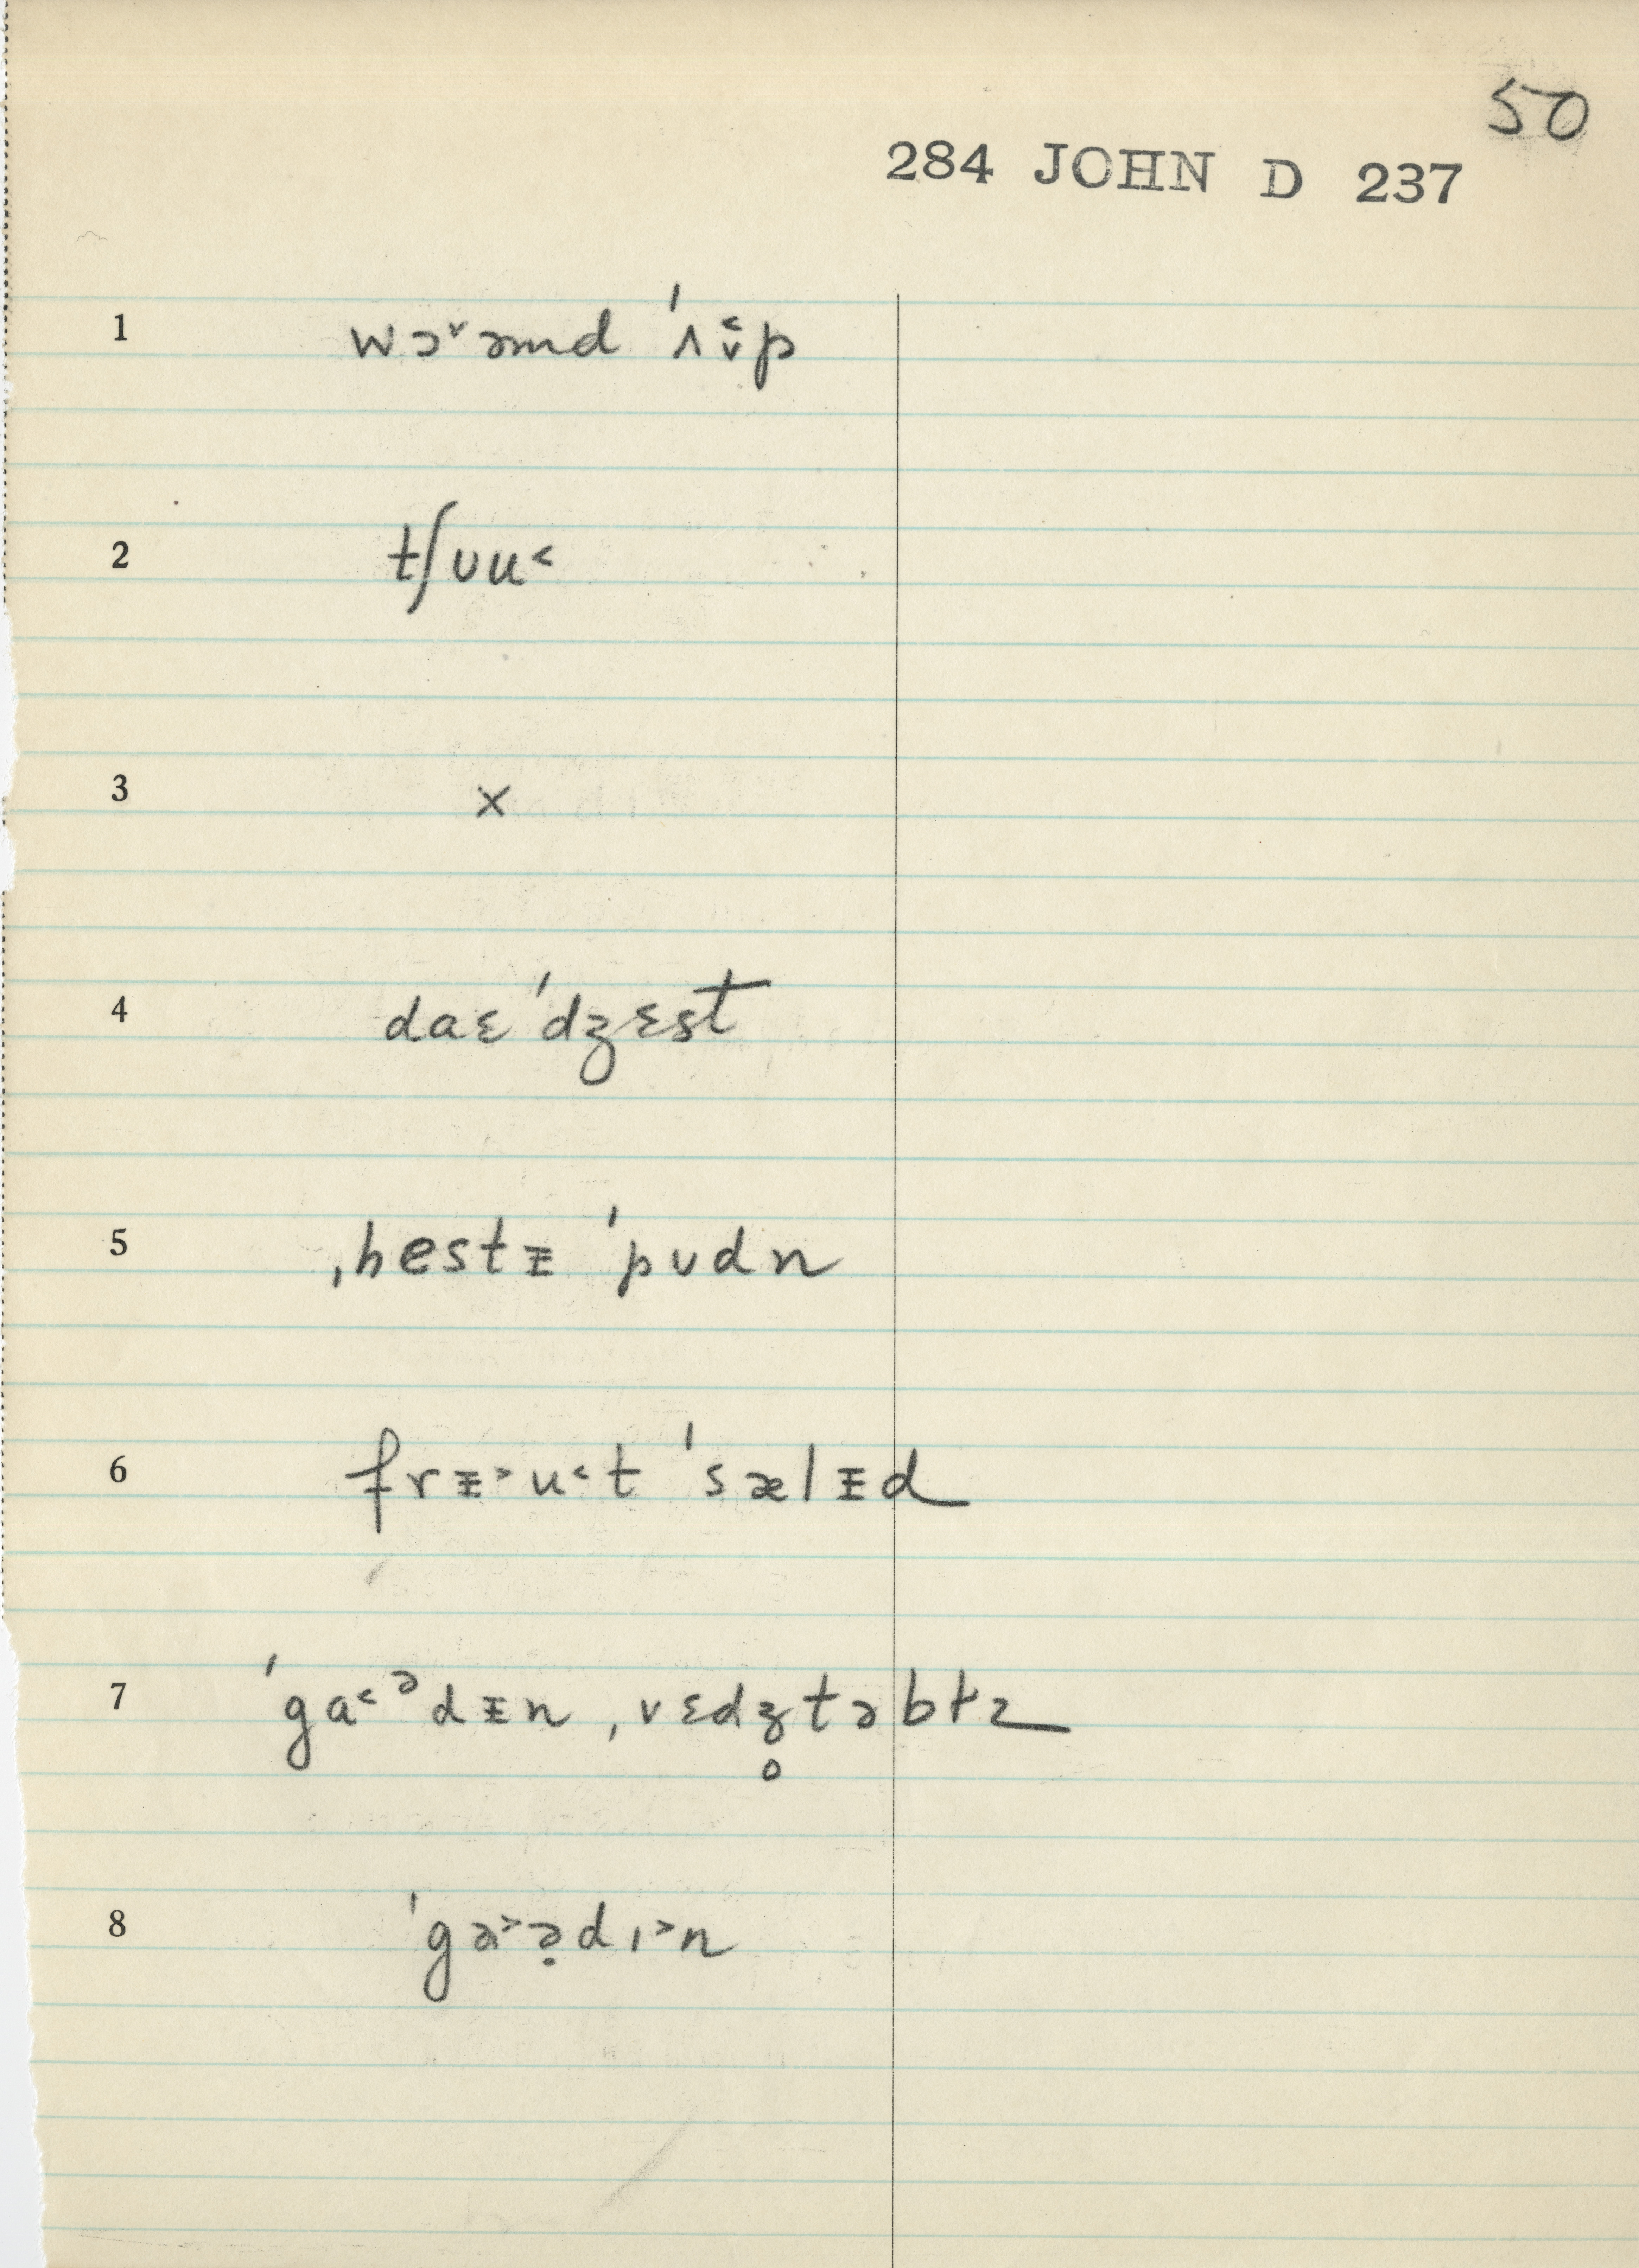 50
284 JOHN D 237
1 wɔ˅əmd ˈʌ˂̬p
2 tʃᴜu˂
3 ×
4 daɛˈdʒɛst
5 ˌhestᵻ ˈpᴜdn
6 frᵻ˃u˂t ˈsælᵻd
7 ˈga˂ᵊdᵻn ˌvɛdʒ̥təbɫz
8 ˈgɑ˃ə̣dɪ˃n